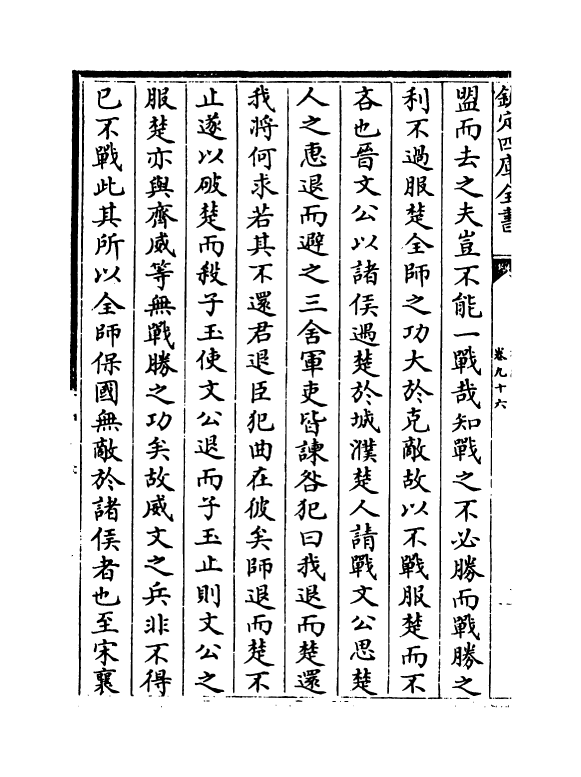 欽定四庫全書
卷九十六
盟而去之夫豈不能一戰哉知戰之不必勝而戰勝之
利不過服楚全師之功大於克敵故以不戰服楚而不
吝也晉文公以諸侯遇楚於城濮楚人請戰文公思楚
人之惠退而避之三舍軍吏皆諫咎犯曰我退而楚還
我將何求若其不還君退臣犯曲在彼矣師退而楚不
止遂以破楚而殺子玉使文公退而子玉止則文公之
服楚亦與齊威等無戰勝之功矣故威文之兵非不得
已不戰此其所以全師保國無敵於諸侯者也至宋襄